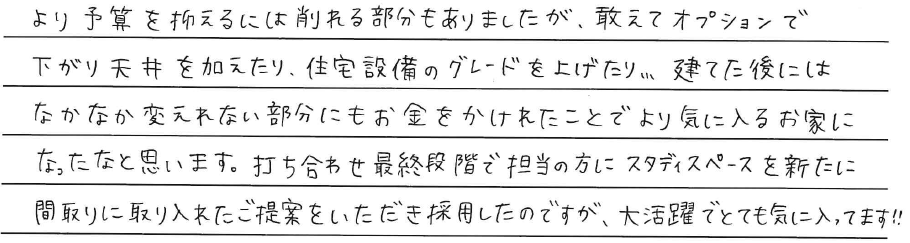 より予算を抑えるには削れる部分もありましたが、敢えてオプションで
下がり天井を加えたり、住宅設備のグレードを上げたり… 建てた後には
なかなか変えれない部分にもお金をかけれたことでより気に入るお家に
なったなと思います。打ち合わせ最終段階で担当の方にスタディスペースを新たに
間取りに取り入れたご提案をいただき採用したのですが、大活躍でとても気に入ってます!!